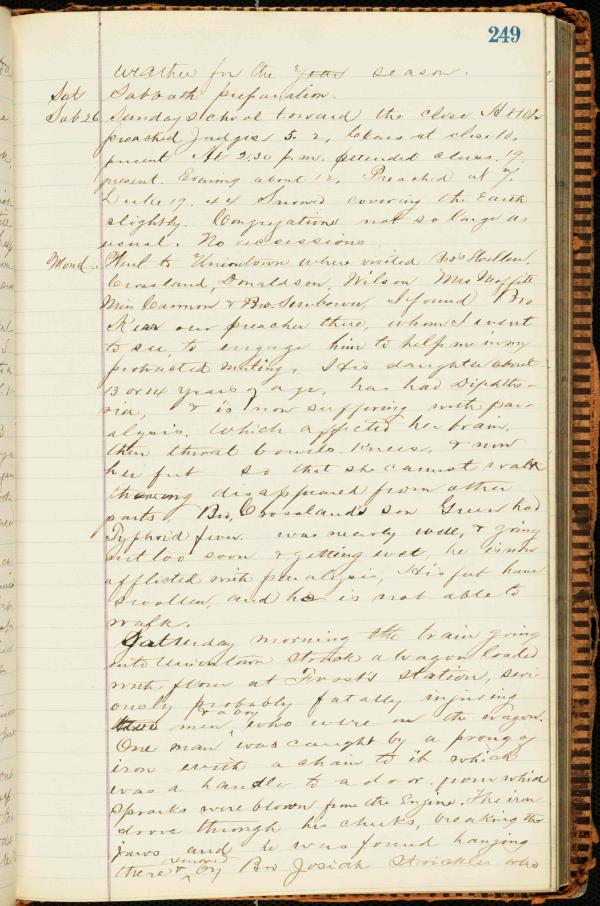 249
weather for the year season.
Sat Sabbath preparation.
Sab 26 Sunday school toward the close At 10½
preached Judges 5. 2, class at close 10,
present At 2.30 p.m. attended class. 19
present. Evening about 12, Preached at 7.
Luke 19. 44 Snowed covering the Earth
slightly. Congregations not so large as
usual. No accessions.
Mond. Went to Uniontown where visited Bro's
Crossland, Donaldson, Wilson, Mrs Moffitt
Miss Cannon & Bro. I found Bro
Kerr our preacher there, whom I went
to see, to engage him to help me in my
protracted meeting, His daughter about
13 or 14 years of age, has had Diphthe-
ria, & is now suffering with par-
alysis. Which affected her brain,
then throat bowels knees, & now
her feet so that she cannot walk
disappeared from other
parts. Bro, Crossland's son Green had
Typhoid fever was nearly well, & going
out too soon & getting wet, he is now
afflicted with paralysis, His feet have
swollen, and he is not able to
walk.
Saturday morning the train going
into Uniontown struck a wagon loaded
with flour at Frost's station, seri-
ously probably fatally injuring
men & a boy who were on the wagon.
One man was caught by a prong of
iron with a chain to it which
was a handle to a door from which
sparks were blown from the Engine. The iron
drove through his cheeks, breaking the
jaws and he was found hanging
there & removed by Bro Josiah Strickler who